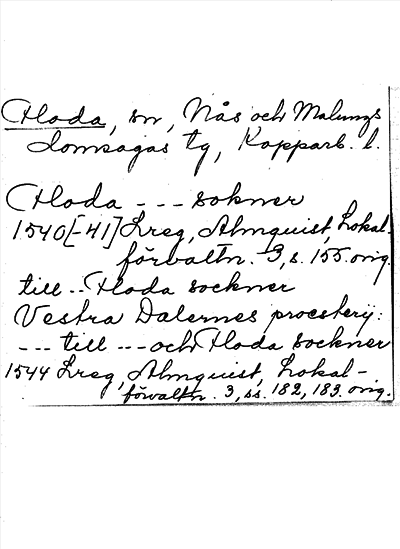 Floda, sn, Nås och Malungs
domsagas tg, Kopparb. l.
Floda --- sokner
1540[-41] Lreg, Almquist, Lokal-
förvaltn. 3, s. 155. orig.
till -- Floda sockner
Vestra Dalernes procsterij:
--- till --- och Floda sockner
1544 Lreg, Almquist, Lokal-
förvaltn. 3, ss. 182, 183. orig.